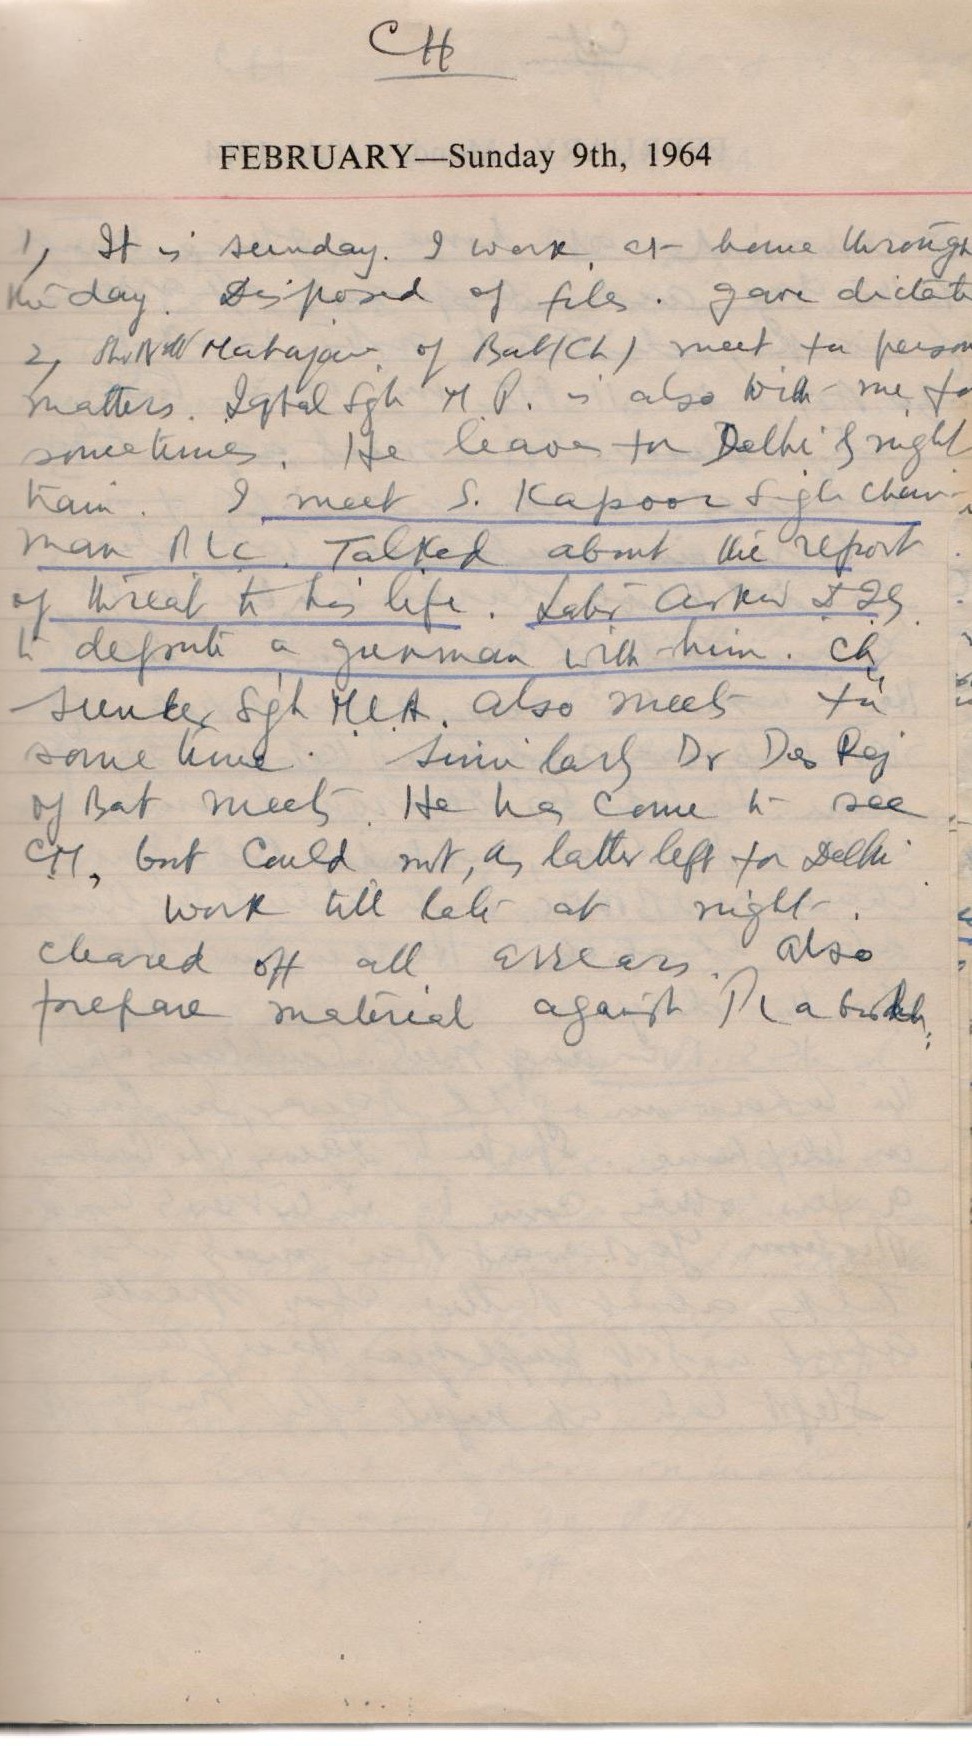 CH
FEBRUARY—Sunday 9th, 1964
1, It is sunday. I work at home through
the day. Disposed of files. gave dictati
2, Mahajan of Bat(Ch) meet for person
matters. Iqbal Sgh M.P. is also with me for
sometimes. He leaves for Delhi by night
train. I meet S. Kapoor Singh Chair-
man PLC. Talked about the report
of threat to his life. Later asked IG
to depute a gunman with him. Ch
Sunder Sgh MLA. also meets for
some time. Similarly Dr Des Raj
of Bat meets. He has come to see
CM, but could not, as latter left for Delhi
work till late at night.
cleared off all arrears. Also
prepare material against